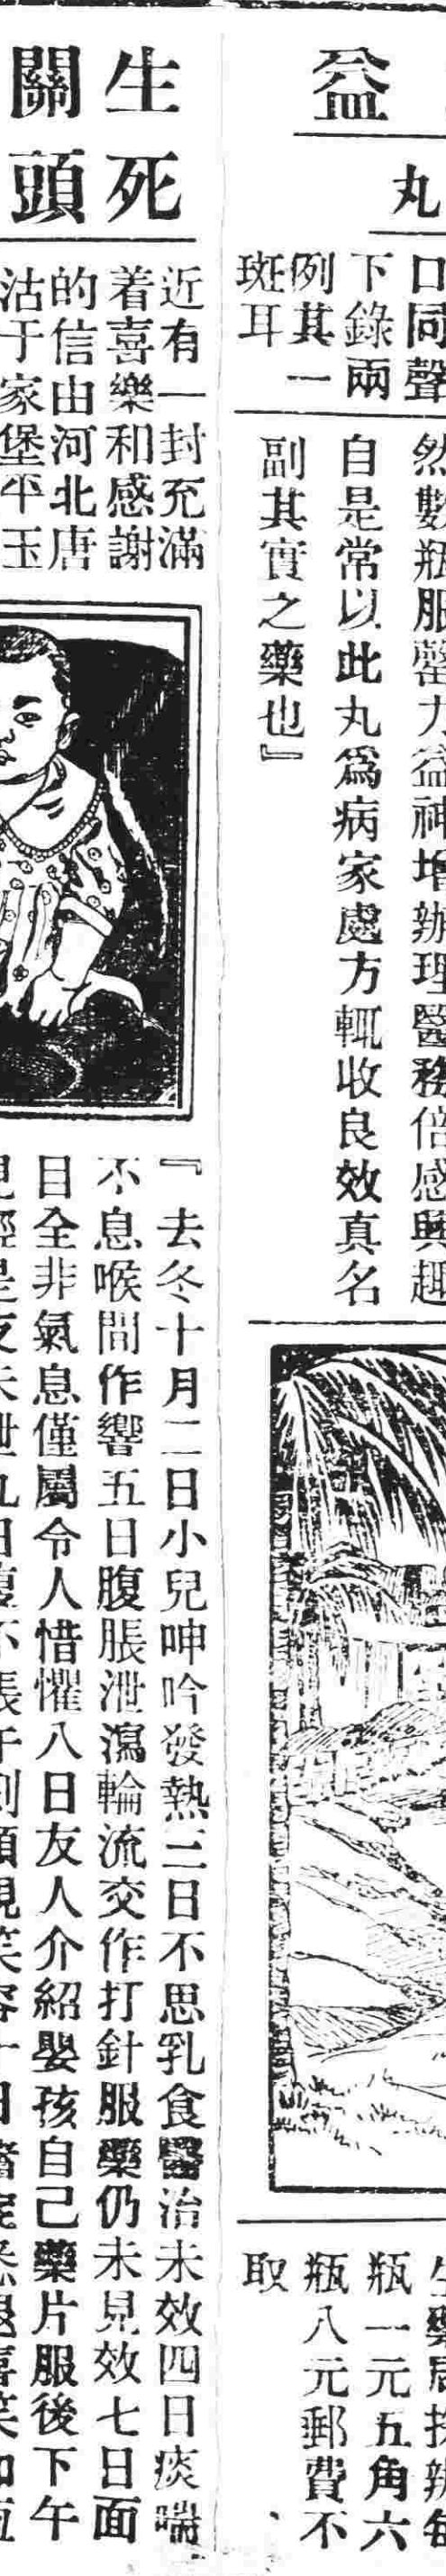 益
丸
口同聲
下錄兩
例其一
斑耳
然數瓶服罄力益神增辦理醫務倍感興趣
自是常以此丸爲病家處方輒收良效真名
副其實之藥也』
瓶一元五角六
瓶八元郵費不
取
生死
關頭
近有一封充滿
着喜樂和感謝
的信由河北唐
沽于家堡平玉
『去冬十月二日小兒呻吟發熱三日不思乳食醫治未效四日痰喘
不息喉間作響五日腹脹泄瀉輪流交作打針服藥仍未見效七日面
目全非氣息僅屬令人惜懼八日友人介紹嬰孩自己藥片服後下午